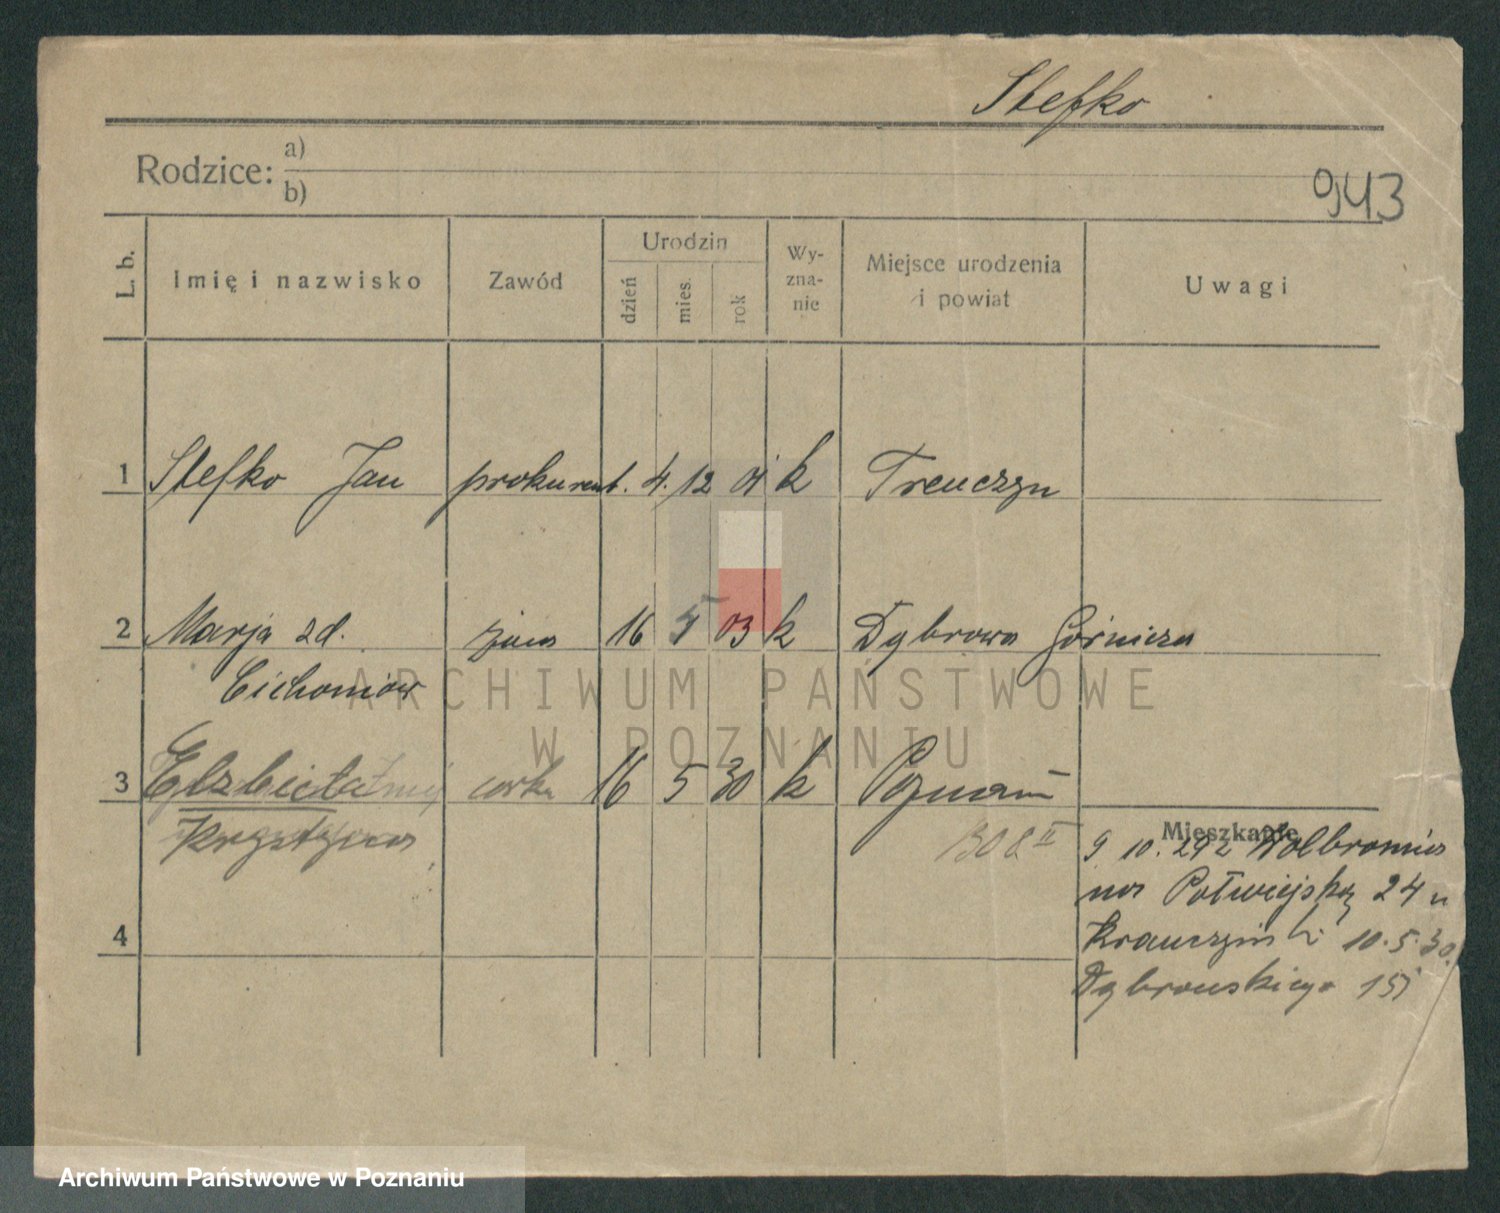 Stefko
Rodzice: a)
b)
943
L. b. Imię i nazwisko Zawód Urodzin dzień mies. rok Wy-zna-nie Miejsce urodzenia i powiat Uwagi
1 Stefko Jan prokurent. 4. 12 01 k Trenczyn
2 Marja zd. żona 16 5 03 k Dąbrowa Górnicza
Cichoniów
3 Elżbieta córka 16 5 30 k Poznań
Krystyna
308 II
Mieszkanie
9 10. 29 z Wolbromia
na Półwiejską 24 u
10. 5. 30.
4
Dąbrowskiego
ARCHIWUM PAŃSTWOWE
W POZNANIU
Archiwum Państwowe w Poznaniu